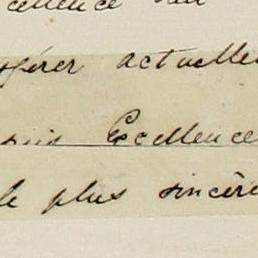 cellence
férer actuelle
suis Excellence
le plus sincère